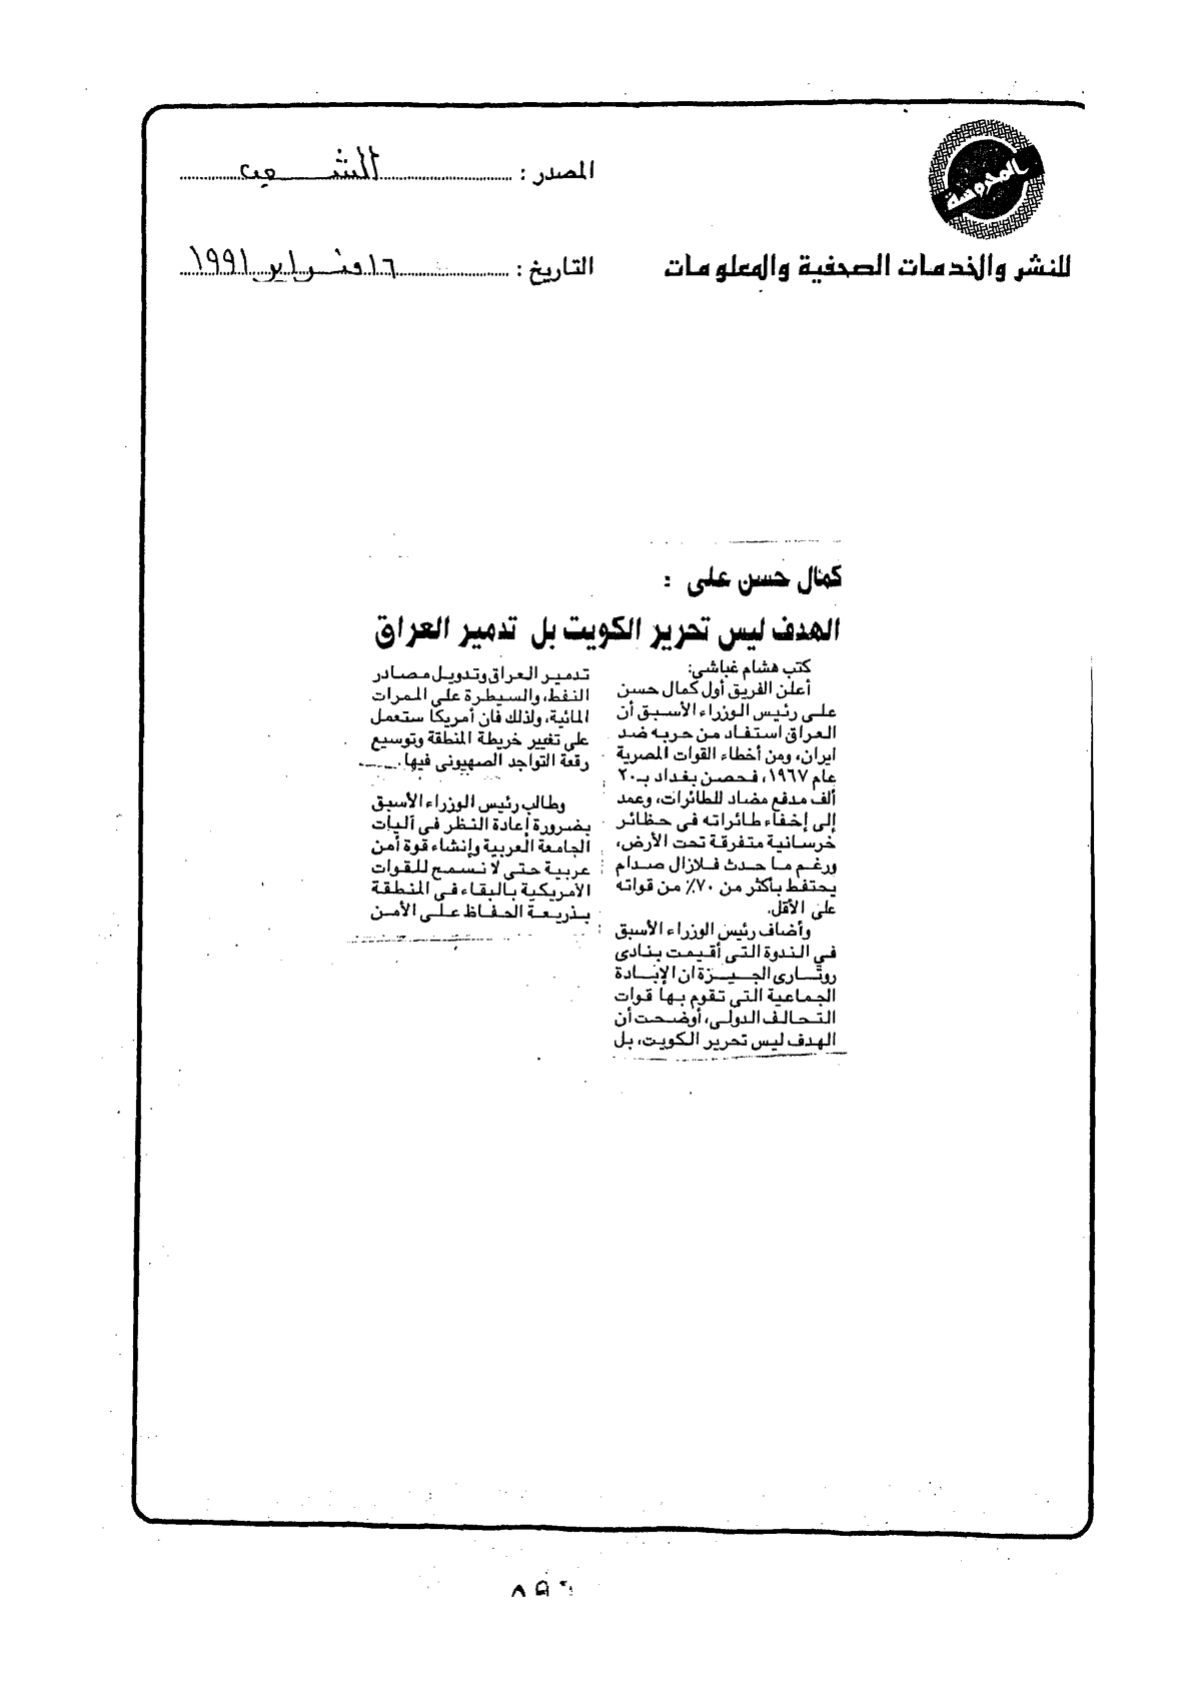 المدوسة
للنشر والخدمات الصحفية والمعلومات
المصدر : الشعب
التاريخ : ١٦ فبراير ١٩٩١
كمال حسن على :
الهدف ليس تحرير الكويت بل تدمير العراق
كتب هشام غباشي:
أعلن الفريق أول كمال حسن
على رئيس الوزراء الأسبق أن
العراق استفاد من حربه ضد
ايران، ومن أخطاء القوات المصرية
عام ١٩٦٧، فحصن بغداد بـ٢٠
ألف مدفع مضاد للطائرات، وعمد
إلى إخفاء طائراته فى حظائر
خرسانية متفرقة تحت الأرض،
ورغم ما حدث فلازال صدام
يحتفظ بأكثر من ٧٠٪ من قواته
على الأقل.
وأضاف رئيس الوزراء الأسبق
فى الندوة التى أقيمت بنادى
روتارى الجيزة ان الإبادة
الجماعية التى تقوم بها قوات
التحالف الدولى، أوضحت أن
الهدف ليس تحرير الكويت، بل
تدمير العراق وتدويل مصادر
النفط، والسيطرة على الممرات
المائية، ولذلك فان أمريكا ستعمل
على تغيير خريطة المنطقة وتوسيع
رقعة التواجد الصهيونى فيها.
وطالب رئيس الوزراء الأسبق
بضرورة إعادة النظر فى آليات
الجامعة العربية وإنشاء قوة أمن
عربية حتى لا نسمح للقوات
الأمريكية بالبقاء فى المنطقة
بذريعة الحفاظ على الأمن